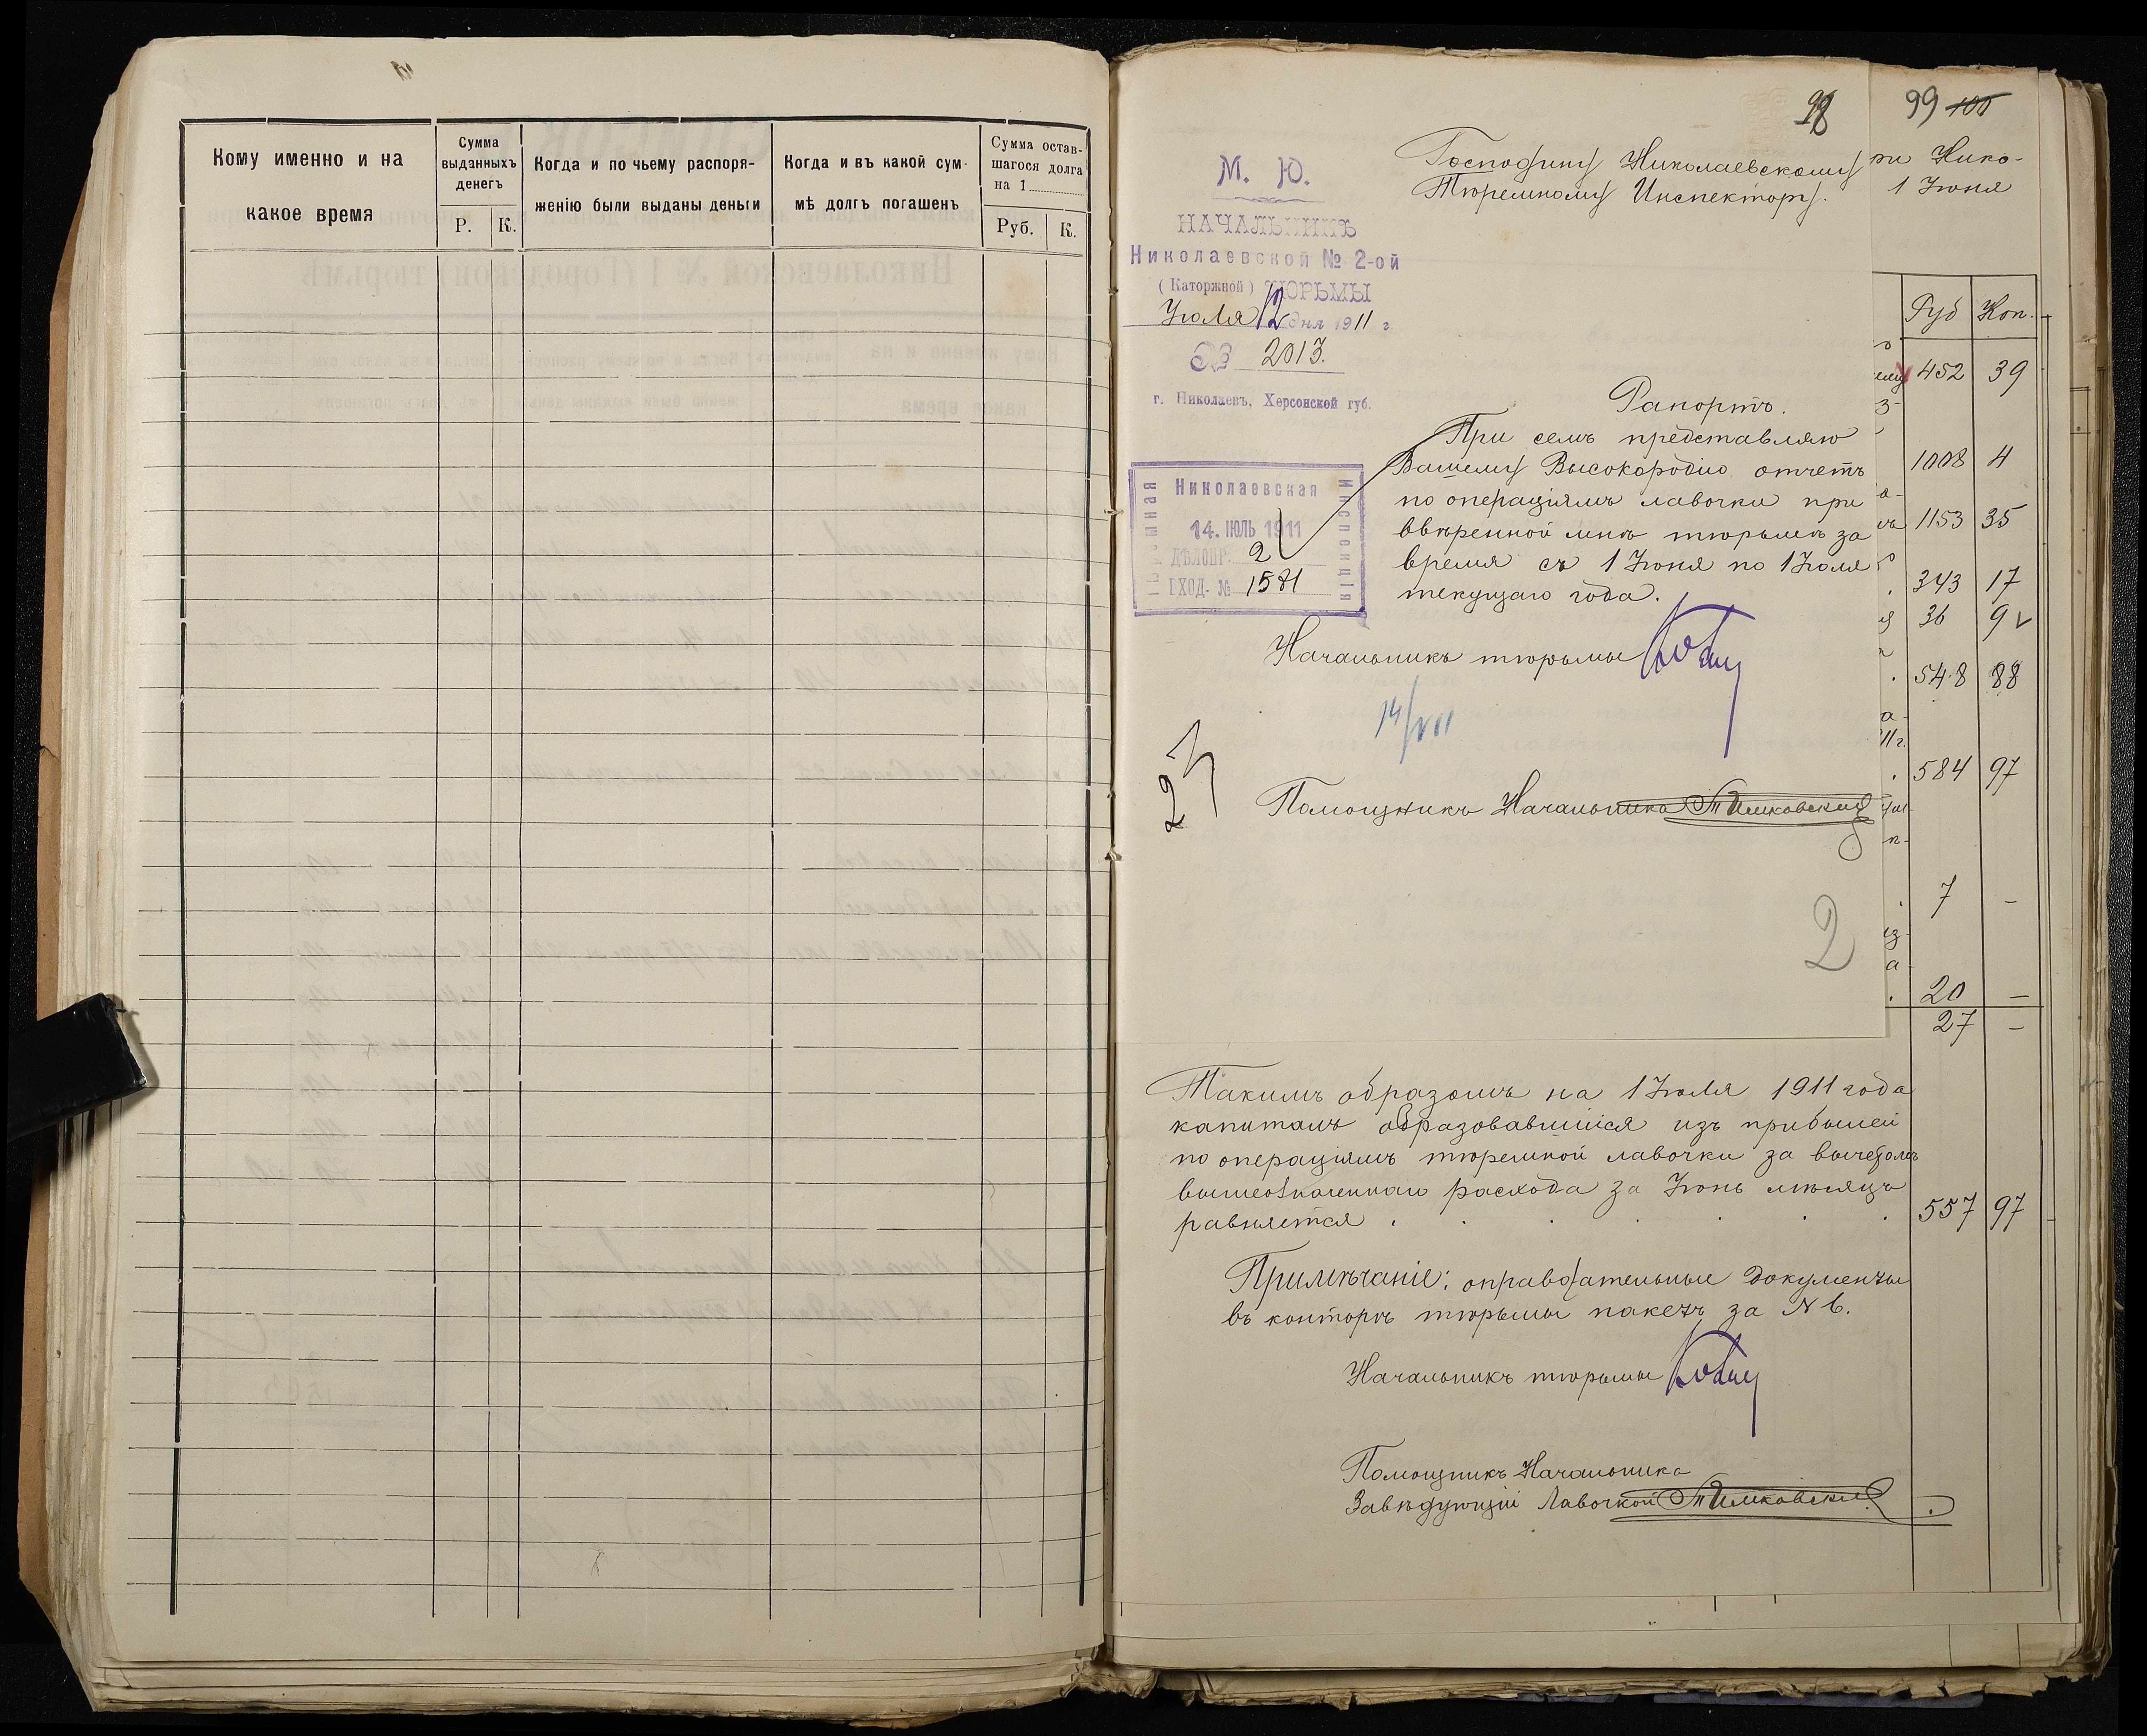 Кому именно и на
какое время
Сумма
выданныхъ
денегъ
Р. К.
Когда и по чьему распоря-
женію были выданы деньги
Когда и въ какой сум-
мѣ долгъ погашенъ
Сумма остав-
шагося долга
на 1
Руб. К.
98
М. Ю.
НАЧАЛЬНИКЪ
Николаевской № 2-ой
(Каторжной) ТЮРЬМЫ
Іюля 12 дня 1911 г.
№ 2013.
г. Николаевъ, Херсонской губ.
Господину Николаевскому
Тюремному Инспектору.
Рапортъ.
При семъ представляю
Вашему Высокородію отчетъ
по операціямъ лавочки при
ввѣренной мнѣ тюрьмѣ за
время съ 1 Іюня по 1 Іюля
текущаго года.
Николаевская
Тюремная
Инспекція
14. ІЮЛЬ 1911
ДѢЛОПР. 2
ВХОД. № 1581
Начальникъ тюрьмы
14/VII
23
Помощникъ Начальника Тимковскій
2
99 100
ри Нико-
1 Іюня
Руб Коп.
452 39
1008 4
1153 35
343 17
36 9
548 88
а-
11 г.
584 97
7 -
из-
а-
20 -
27 -
Такимъ образомъ на 1 Іюля 1911 года
капиталъ образовавшійся изъ прибылей
по операціямъ тюремной лавочки за вычетомъ
вышеозначеннаго расхода за Іюнь мѣсяцъ
равняется . . . . . . 557 97
Примѣчаніе: оправдательные документы
въ конторѣ тюрьмы пакетъ за № 6.
Начальникъ тюрьмы
Помощникъ Начальника
Завѣдующій Лавочкой Тимковскій